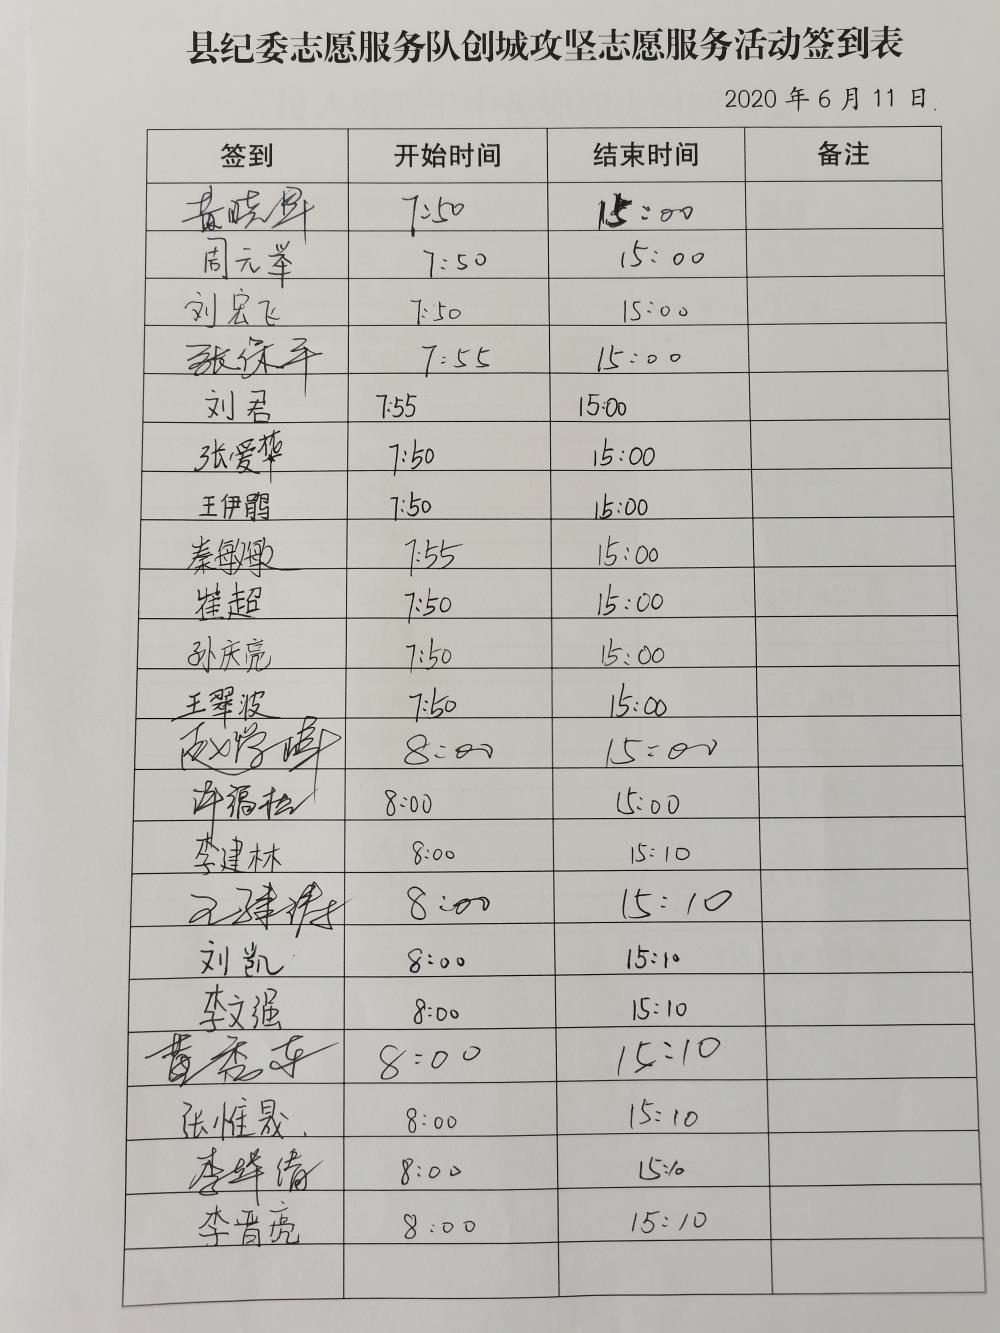 县纪委志愿服务队创城攻坚志愿服务活动签到表
2020年6月11日
签到 开始时间 结束时间 备注
黄晓军 7:50 15:00
周元举 7:50 15:00
刘宏飞 7:50 15:00
张保平 7:55 15:00
刘君 7:55 15:00
张爱华 7:50 15:00
王伊鹃 7:50 15:00
秦敏敏 7:55 15:00
崔超 7:50 15:00
孙庆亮 7:50 15:00
王翠波 7:50 15:00
赵学 8:00 15:00
许福松 8:00 15:00
李建林 8:00 15:10
王 8:00 15:10
刘凯 8:00 15:10
李文强 8:00 15:10
黄秀东 8:00 15:10
张惟晟 8:00 15:10
李 倩 8:00 15:10
李晋亮 8:00 15:10